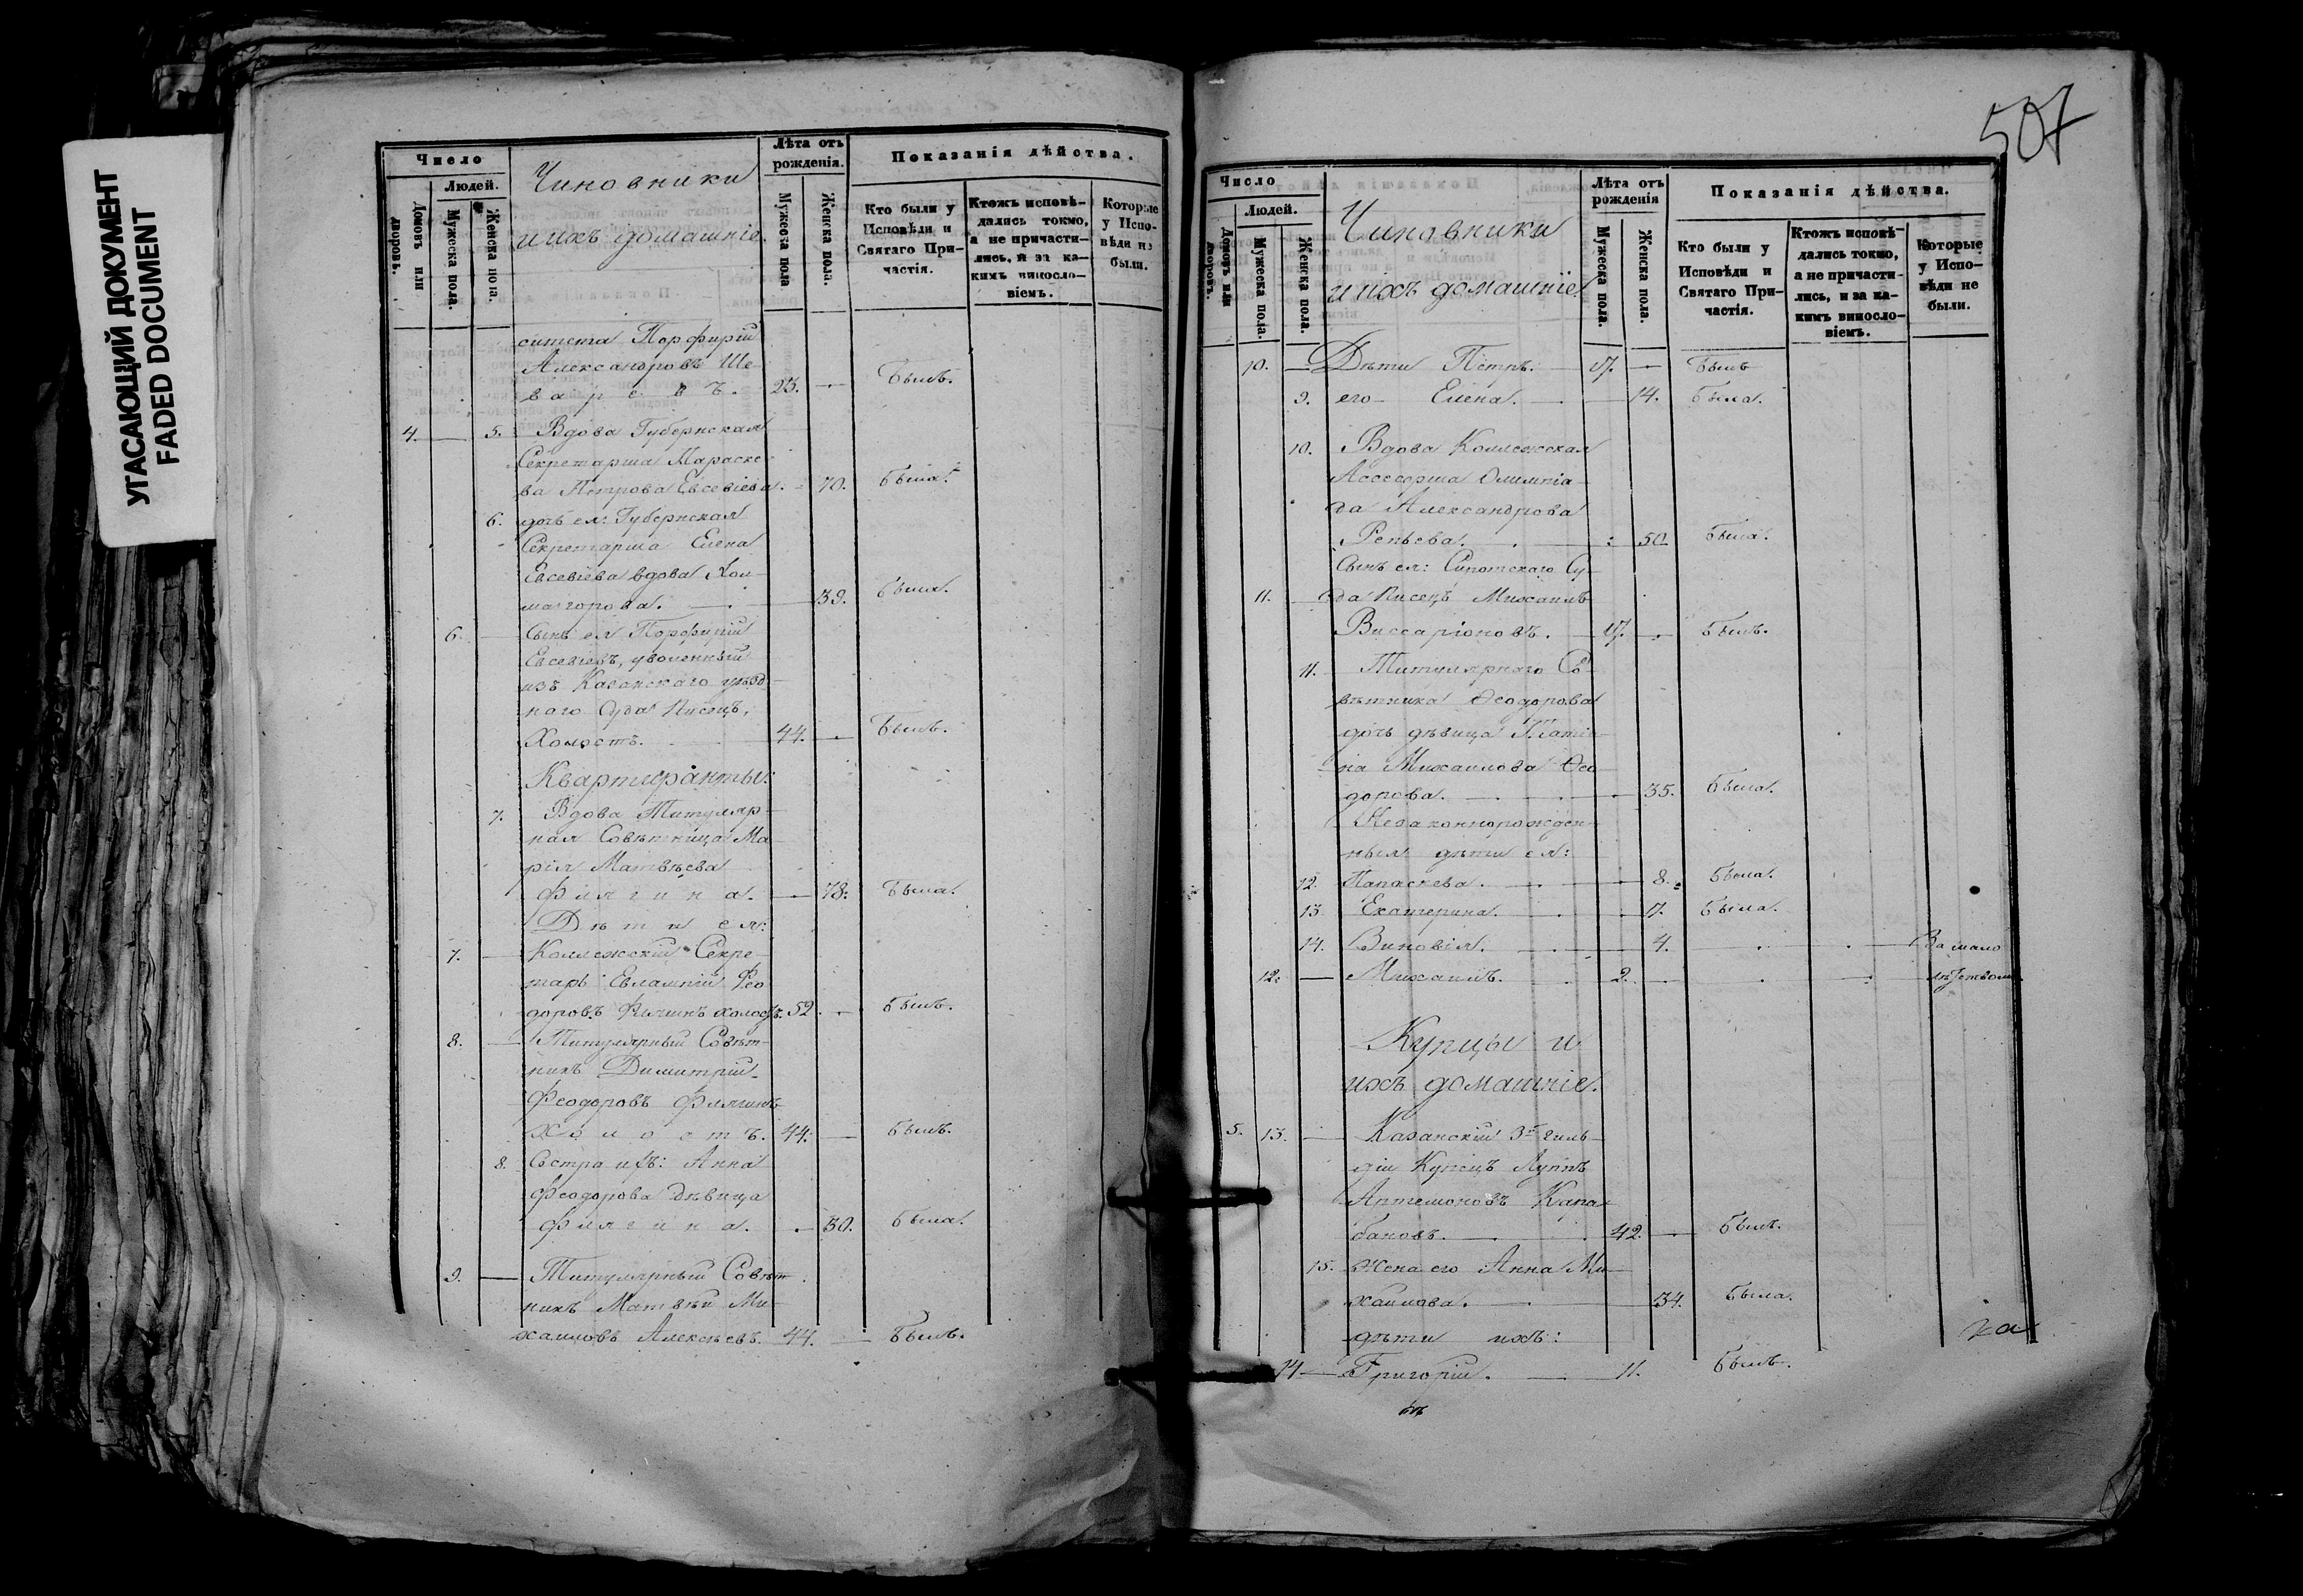 УГАСАЮЩИЙ ДОКУМЕНТ
FADED DOCUMENT
Число
Людей.
Домовъ или дворовъ.
Мужеска пола.
Женска пола.
Чиновники
и ихъ домашніе.
Лѣта отъ рожденія.
Мужеска пола
Женска пола.
Показанія дѣйства.
Кто были у Исповѣди и Святаго Причастія.
Ктожъ исповѣдались токмо, а не причастились, и за какимъ винословіемъ.
Которые у Исповѣди не были.
ситета Порфирій
Александровъ Ше-
варевъ. 23. — Былъ.
4. — 5. Вдова Губернская
Секретарша Параске-
ва Петрова Евсевіева. 70. была.
6. дочь ея: Губернская
Секретарша Елена
Евсевіева вдова Хол-
могорова. — 39. была.
6. — Сынъ ея Порфирій
Евсевіевъ, уволенный
изъ Казанскаго уѣзд-
наго Суда Писецъ,
Холостъ. 44. — былъ.
Квартиранты:
7. Вдова Титуляр-
ная Совѣтница Ма-
рія Матвѣева
Филгина. — 78. была.
Дѣти ея:
7. — Коллежскій Секре-
тарь Евлампій Фео-
доровъ холостъ. 52. — былъ.
8. — Титулярный Совѣт-
никъ Димитрій
Феодоровъ
Холостъ. 44. — былъ.
8. Сестра ихъ: Анна
Феодорова дѣвица
. — 30. была.
9. — Титулярный Совѣт-
никъ Матвѣй Ми-
хаиловъ Алексѣевъ. 44. — былъ.
507
Число
Людей.
Домовъ или дворовъ.
Мужеска пола.
Женска пола.
Чиновники
и ихъ домашніе.
Лѣта отъ рожденія
Мужеска пола.
Женска пола.
Показанія дѣйства.
Кто были у Исповѣди и Святаго Причастія.
Ктожъ исповѣдались токмо, а не причастились, и за какимъ винословіемъ.
Которые у Исповѣди не были.
10. — Дѣти Петръ. 17. — былъ
9. его Елена. — 14. была.
10. Вдова Коллежская
Ассесорша Олимпіа-
да Александрова
Репьева. — 50. была.
Сынъ ея: Сиротскаго Су-
11. — да Писецъ Михаилъ
Виссаріоновъ. — 17. — былъ.
11. Титулярнаго Со-
вѣтника Ѳеодорова
дочь дѣвица Татіа-
на Михаилова Ѳео-
дорова. — 35. была.
Незаконнорожден-
ныя дѣти ея:
12. Параскева. — 8. была.
13 Екатерина. — 7. была.
14. Зиновія. — 4. — За мало
12. — Михаилъ. 2. — лѣтствомъ
Купцы и
ихъ домашніе.
5. 13. — Казанскій 3й гиль-
діи Купецъ Луппъ
Артемоновъ Кара-
бановъ. — 42. — былъ.
15. Жена его Анна Ми-
хаилова. — 34. была.
дѣти ихъ:
14 — Григорій. — 11. былъ.